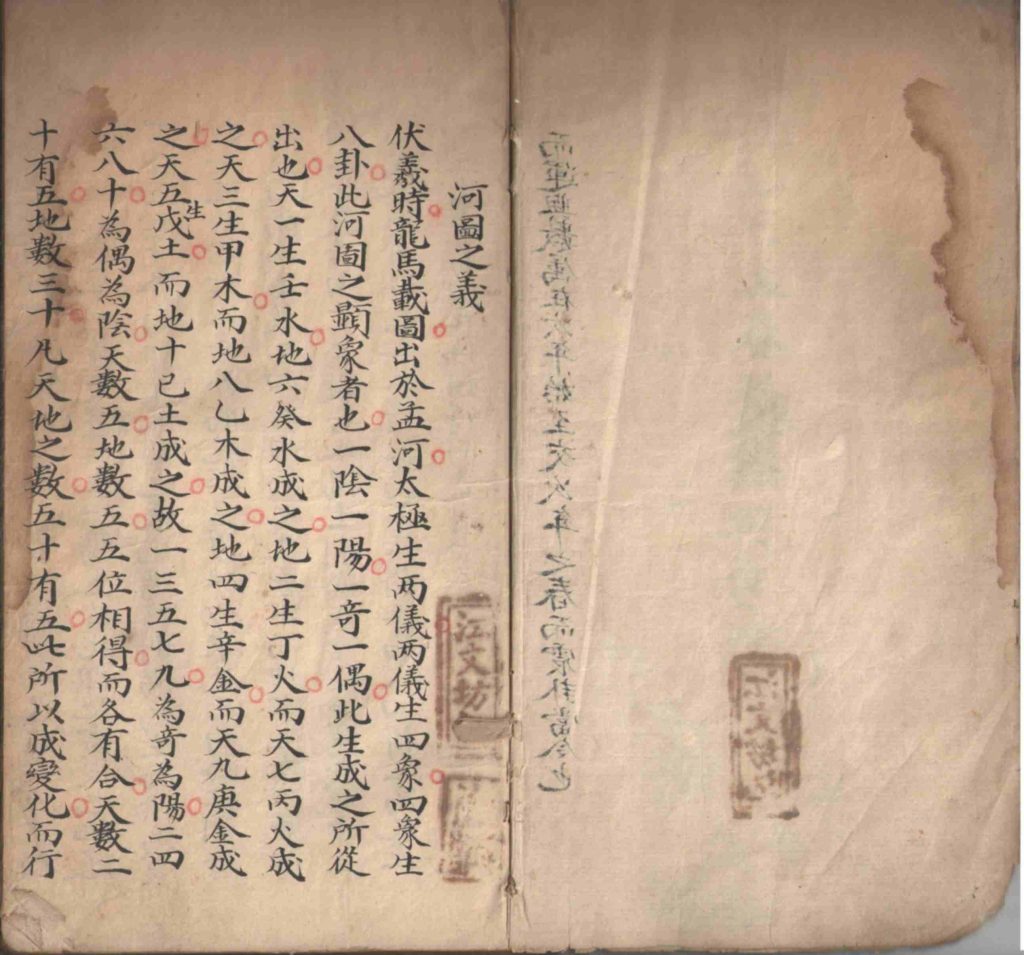 河圖之義
伏羲時龍馬載圖出於孟河太極生两儀两儀生四象四象生
八卦此河啚之顯象者也一陰一陽一竒一偶此生成之所從
出也天一生壬水地六癸水成之地二生丁火而天七丙火成
之天三生甲木而地八乙木成之地四生辛金而天九庚金成
之天五生戊土而地十已土成之故一三五七九為奇為陽二四
六八十為偶為陰天數五地數五五位相得而各有合天數二
十有五地數三十凡天地之數五十有五此所以成變化而行
江文坊